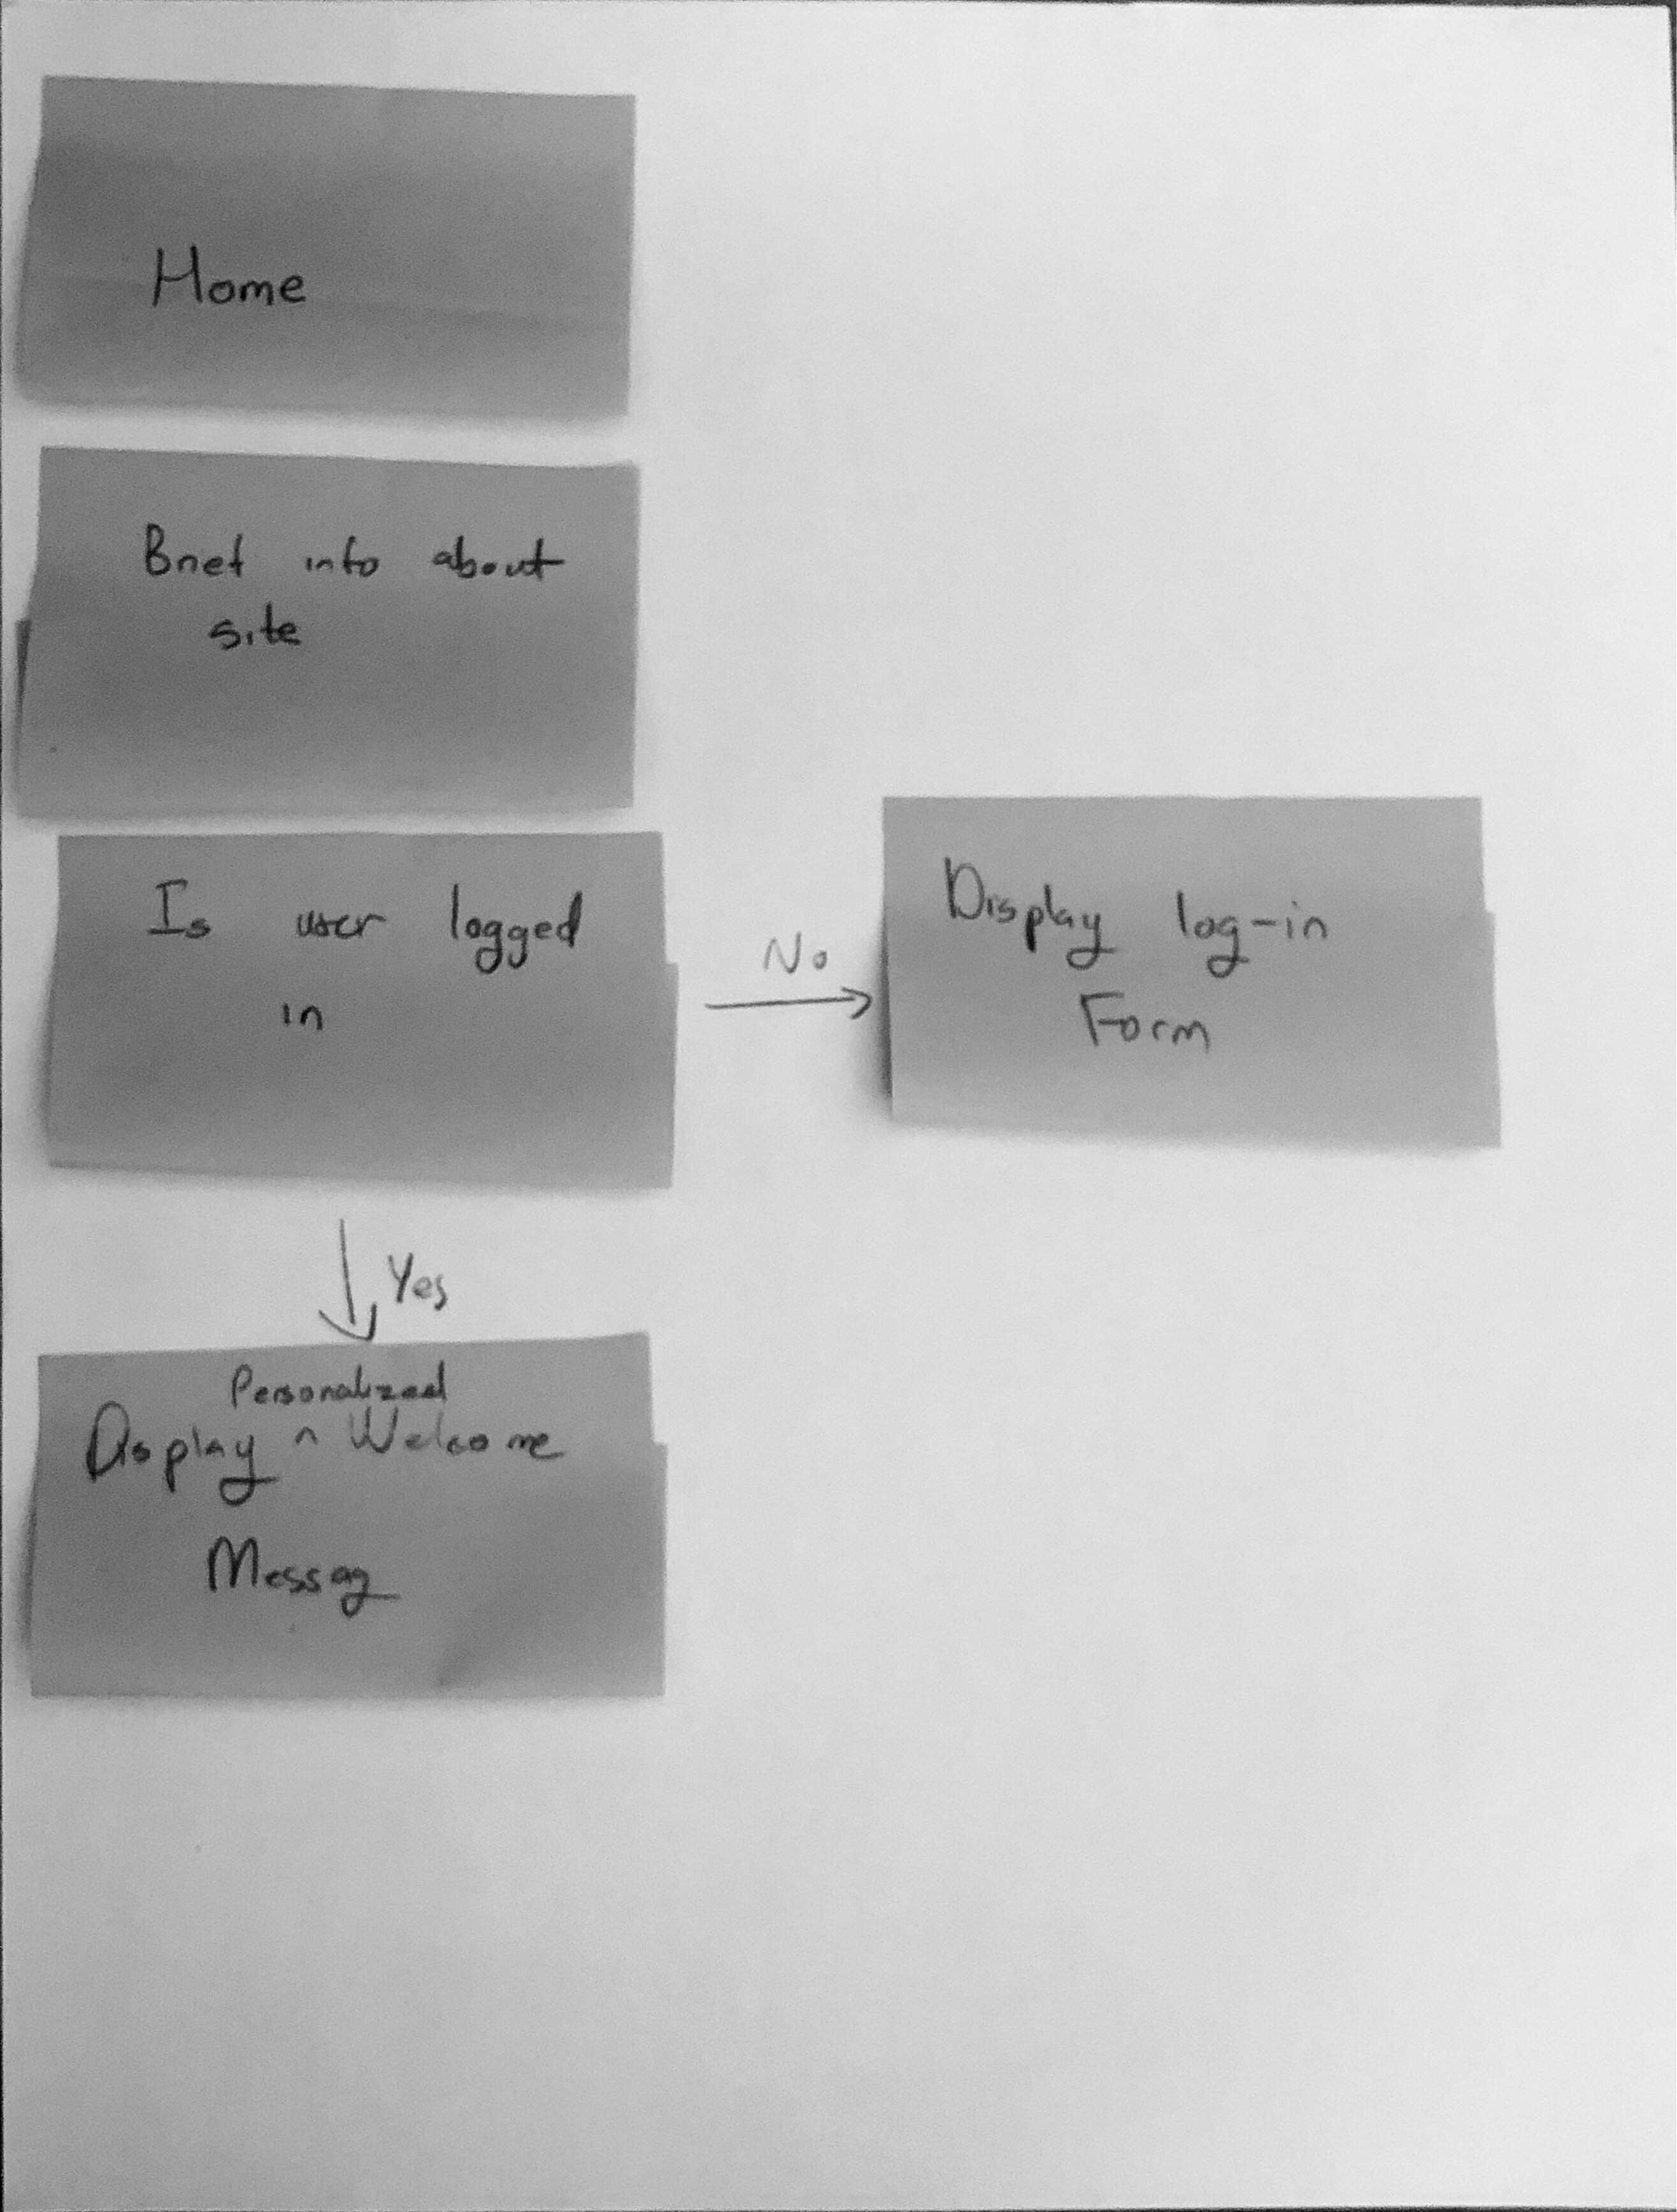 Home
Brief info about
site
Is user logged
in
No
Display log-in
Form
Yes
Personalized
Display ^ Welcome
Message